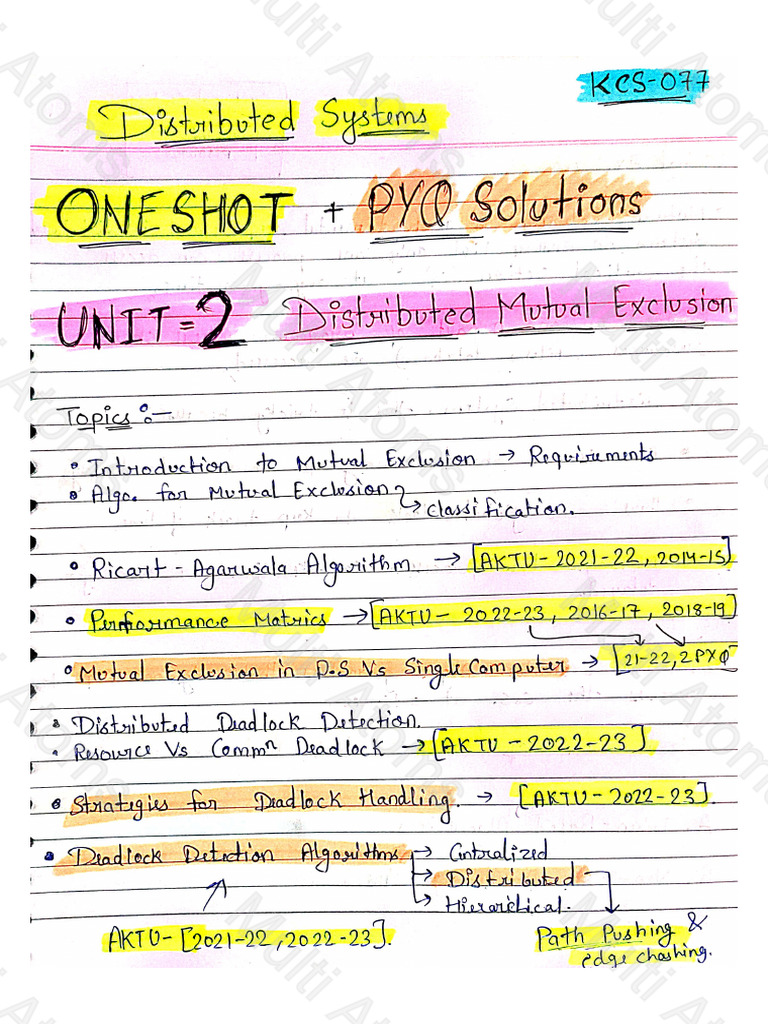 KCS-077
Distributed Systems
ONESHOT + PYQ Solutions
UNIT=2 Distributed Mutual Exclusion
Topics:-
• Introduction to Mutual Exclusion → Requirements
• Algo. for Mutual Exclusion
↳ classification.
• Ricart-Agarwala Algorithm → [AKTU-2021-22, 2014-15]
• Performance Matrics → [AKTU- 2022-23, 2016-17, 2018-19]
• Mutual Exclusion in D.S Vs Single Computer → [21-22, 2PYQ
• Distributed Deadlock Detection.
• Resource Vs Commⁿ Deadlock → [AKTU-2022-23]
• Strategies for Deadlock Handling. → [AKTU-2022-23].
• Deadlock Detection Algorithms → Centralized
→ Distributed
↳ Hierarchical.
AKTU-[2021-22, 2022-23].
Path Pushing &
edge chashing.
Multi Atoms